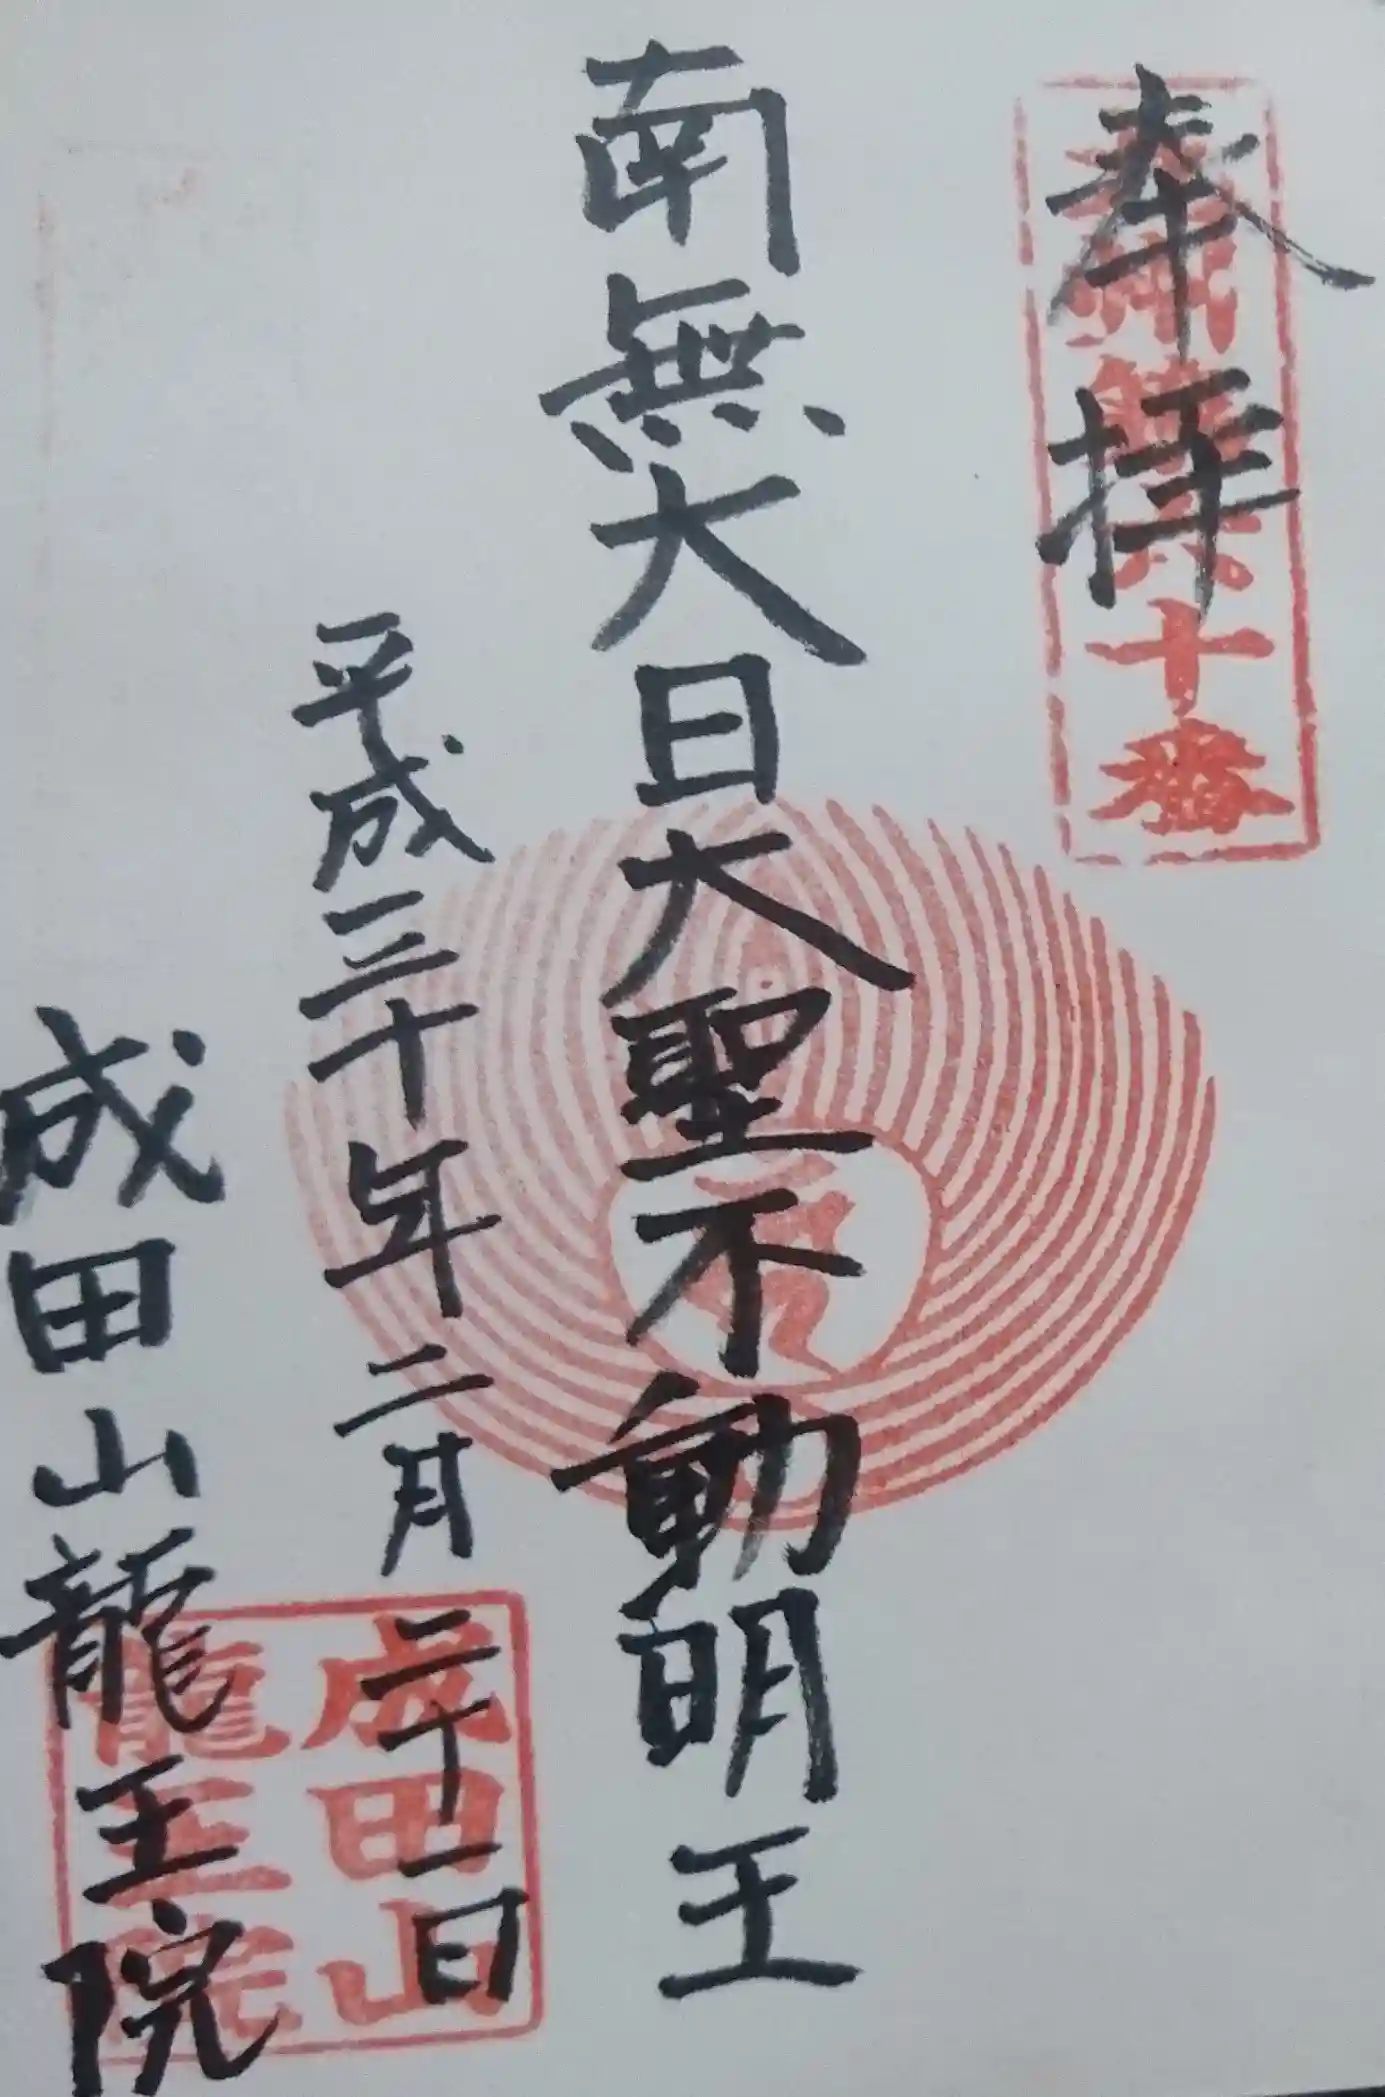 奉拝
十番
南無大日大聖不動明王
平成三十年二月二十一日
成田山龍王院
成田山
龍王院